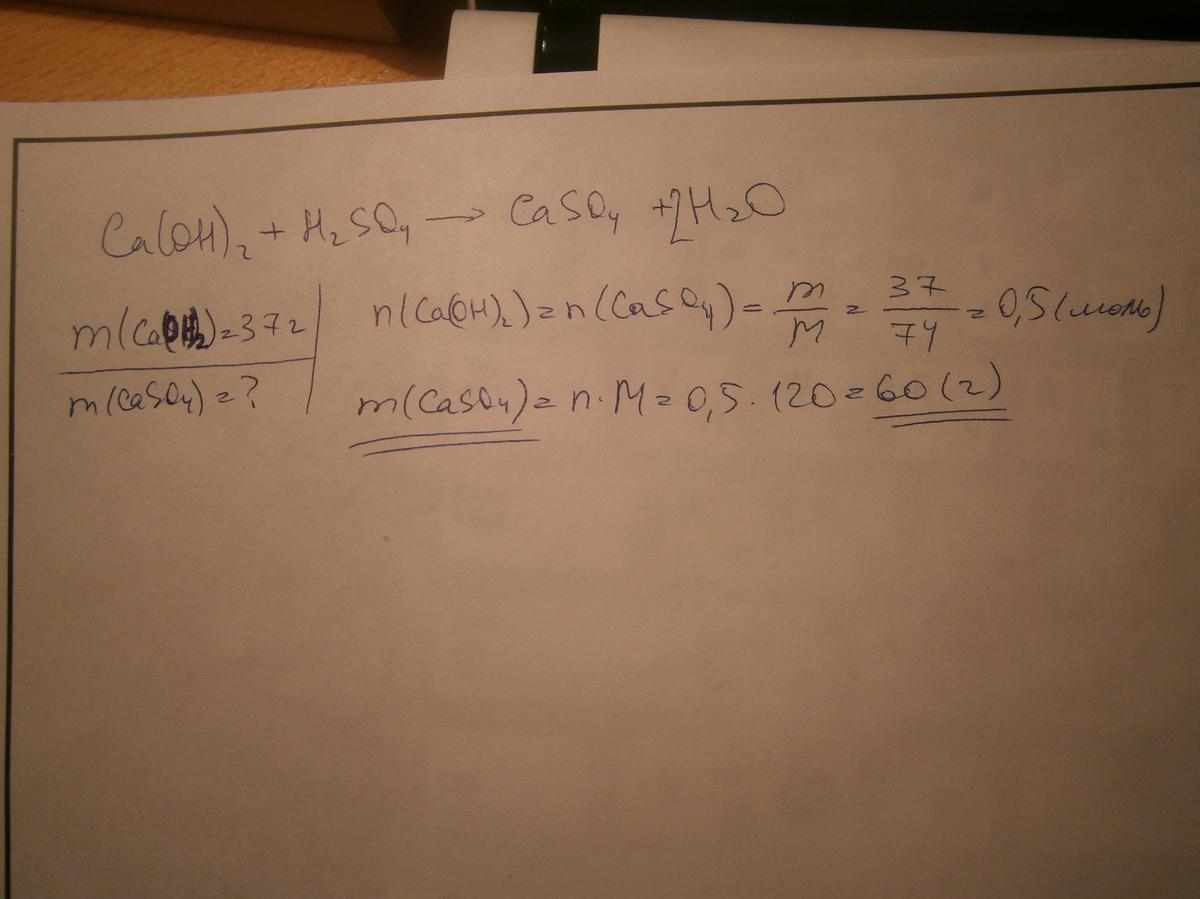 Ca(OH)₂ + H₂SO₄ → CaSO₄ + 2H₂O
m(Ca(OH)₂) = 37г
m(CaSO₄) = ?
n(Ca(OH)₂) = n(CaSO₄) = m/M = 37/74 = 0,5 (моль)
m(CaSO₄) = n · M = 0,5 · 120 = 60 (г)